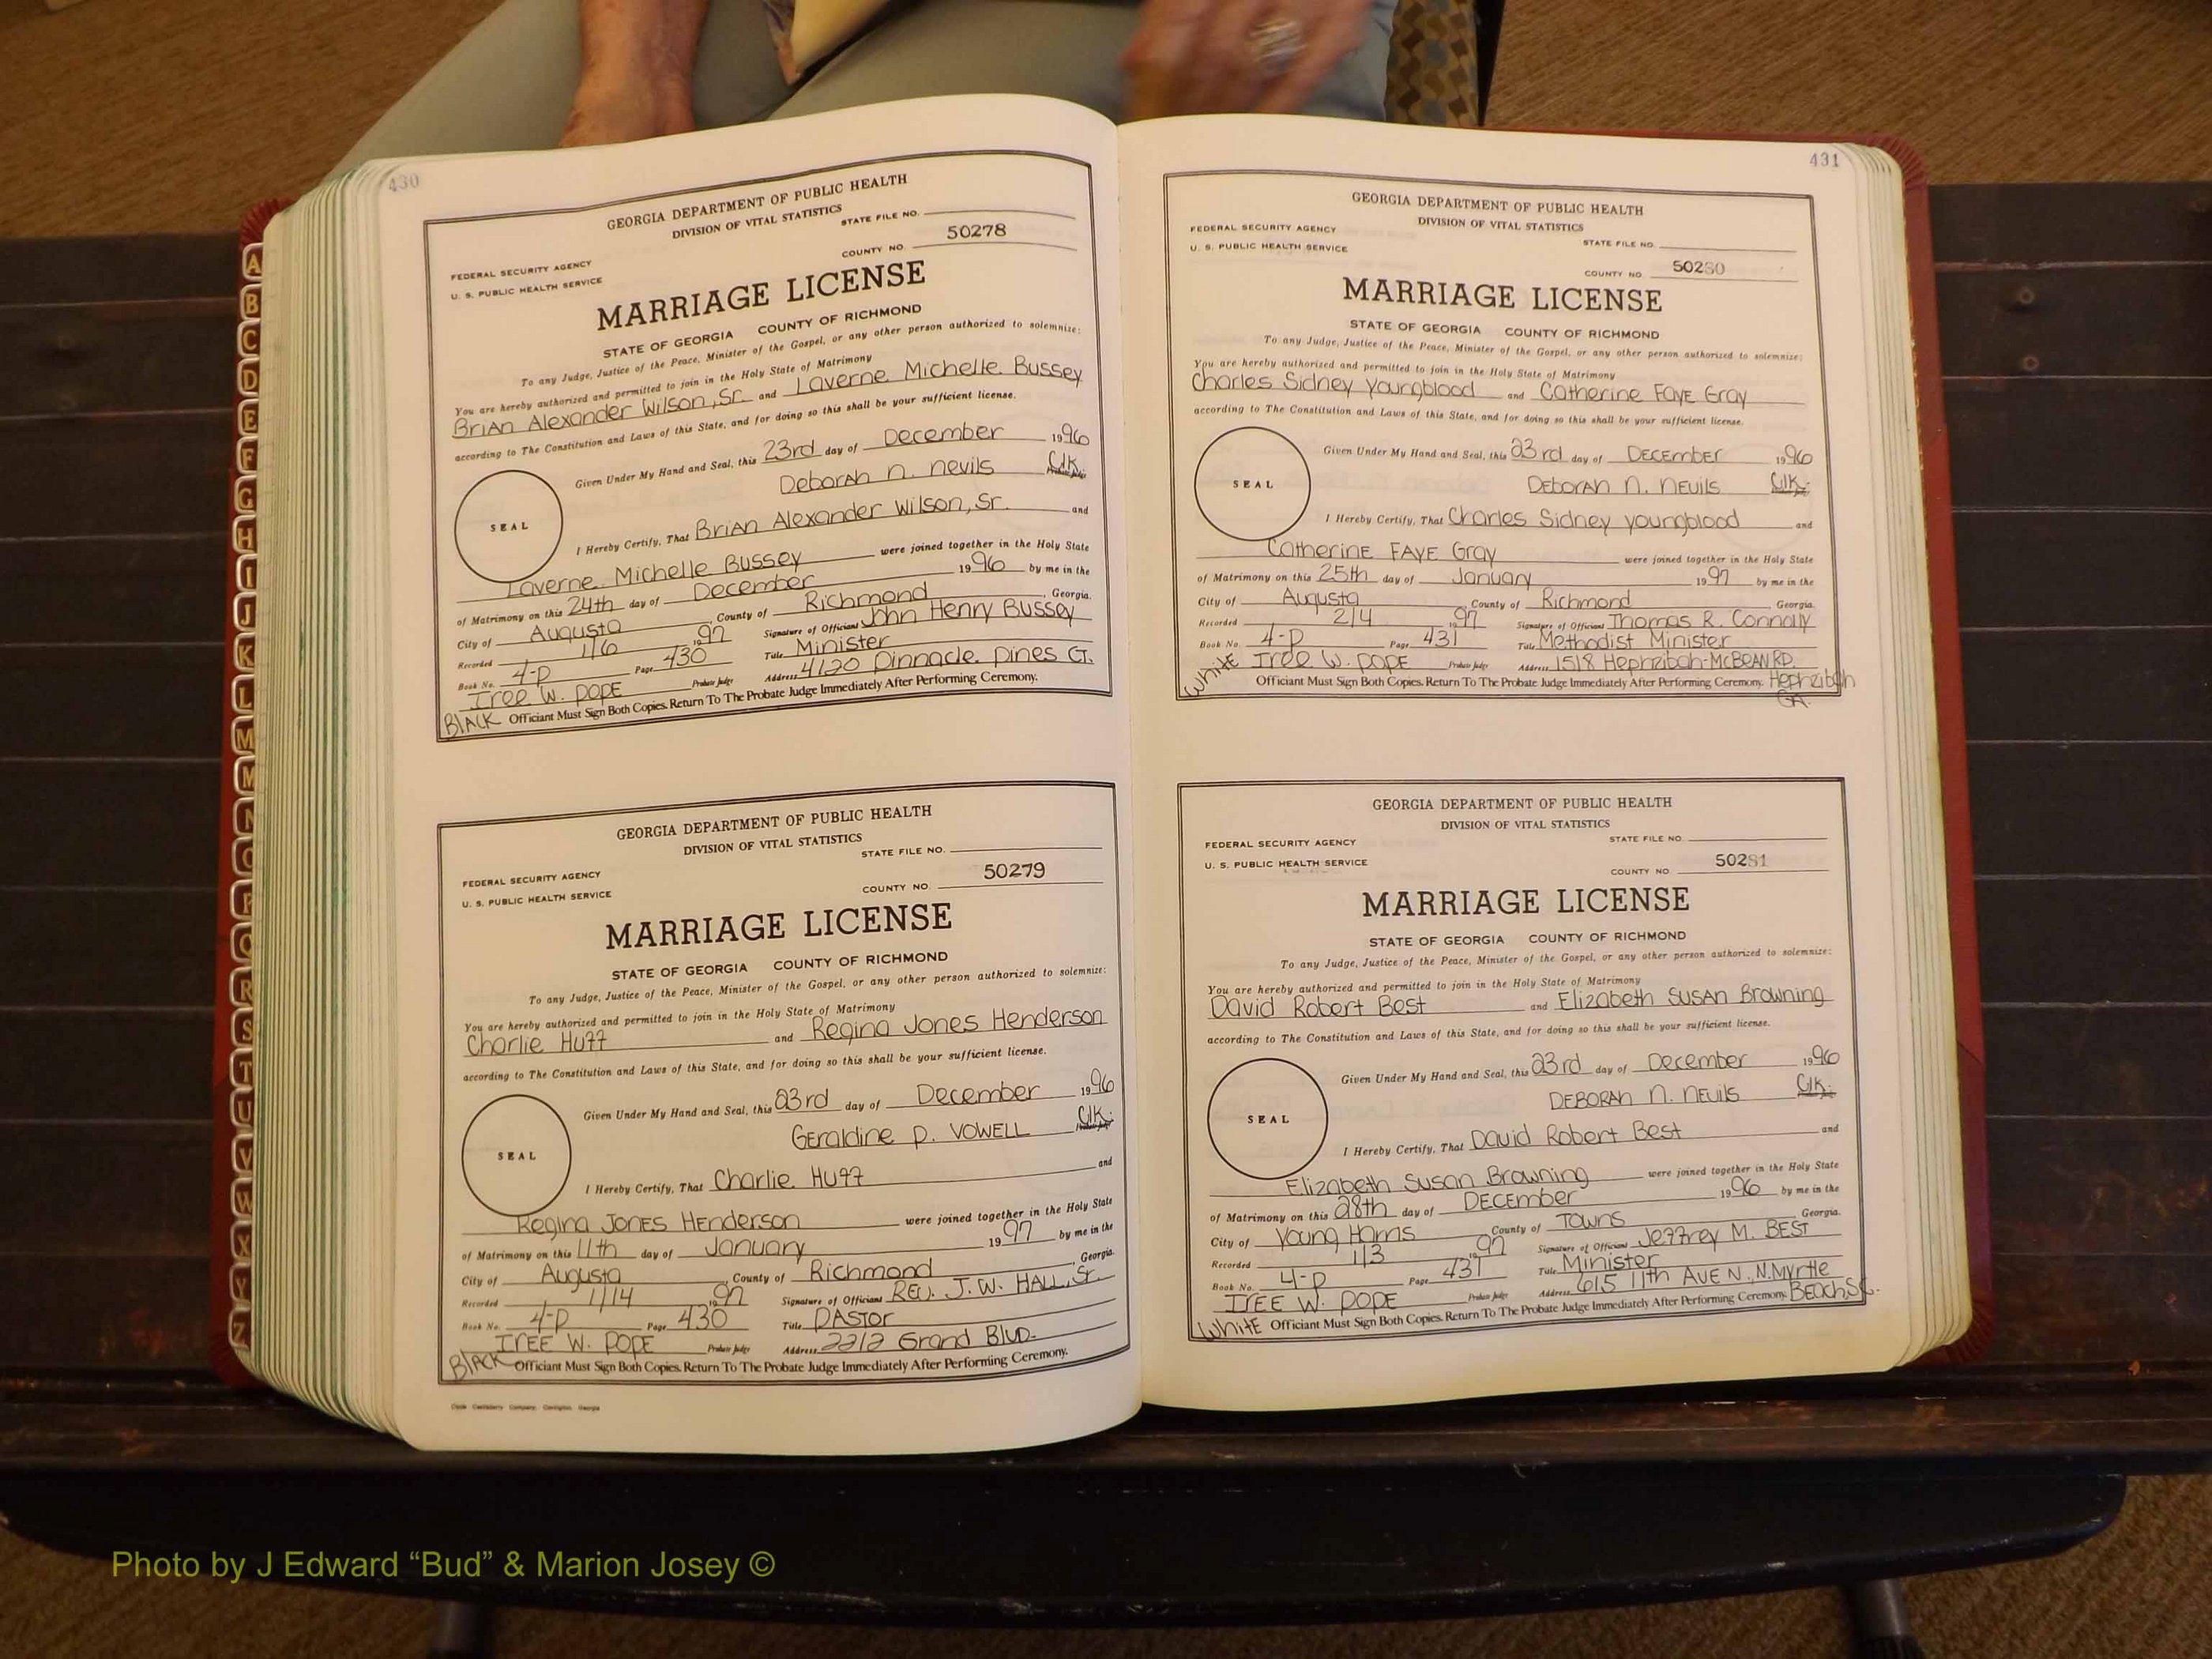 430
GEORGIA DEPARTMENT OF PUBLIC HEALTH
DIVISION OF VITAL STATISTICS
STATE FILE NO.
COUNTY NO. 50278
FEDERAL SECURITY AGENCY
U. S. PUBLIC HEALTH SERVICE
MARRIAGE LICENSE
STATE OF GEORGIA COUNTY OF RICHMOND
To any Judge, Justice of the Peace, Minister of the Gospel, or any other person authorized to solemnize:
You are hereby authorized and permitted to join in the Holy State of Matrimony
Brian Alexander Wilson, Sr. and Laverne Michelle Bussey
according to The Constitution and Laws of this State, and for doing so this shall be your sufficient license.
Given Under My Hand and Seal, this 23rd day of December 1996
Deborah N. Nevils Clk.
SEAL
I Hereby Certify, That Brian Alexander Wilson, Sr. and
Laverne Michelle Bussey were joined together in the Holy State
of Matrimony on this 24th day of December 1996 by me in the
City of Augusta, County of Richmond, Georgia.
Recorded 1/6 1997 Signature of Officiant John Henry Bussey
Book No. 4-P Page 430 Title Minister
Tree W. Pope Probate Judge Address 4120 Pinnacle Pines Ct.
BLACK Officiant Must Sign Both Copies. Return To The Probate Judge Immediately After Performing Ceremony.
GEORGIA DEPARTMENT OF PUBLIC HEALTH
DIVISION OF VITAL STATISTICS
STATE FILE NO.
COUNTY NO. 50279
FEDERAL SECURITY AGENCY
U. S. PUBLIC HEALTH SERVICE
MARRIAGE LICENSE
STATE OF GEORGIA COUNTY OF RICHMOND
To any Judge, Justice of the Peace, Minister of the Gospel, or any other person authorized to solemnize:
You are hereby authorized and permitted to join in the Holy State of Matrimony
Charlie Huff and Regina Jones Henderson
according to The Constitution and Laws of this State, and for doing so this shall be your sufficient license.
Given Under My Hand and Seal, this 23rd day of December 1996
Geraldine P. Vowell Clk.
SEAL
I Hereby Certify, That Charlie Huff and
Regina Jones Henderson were joined together in the Holy State
of Matrimony on this 11th day of January 1997 by me in the
City of Augusta, County of Richmond, Georgia.
Recorded 1/14 1997 Signature of Officiant Rev. J.W. Hall, Sr.
Book No. 4-P Page 430 Title Pastor
Tree W. Pope Probate Judge Address 2212 Grand Blvd.
BLACK Officiant Must Sign Both Copies. Return To The Probate Judge Immediately After Performing Ceremony.
431
GEORGIA DEPARTMENT OF PUBLIC HEALTH
DIVISION OF VITAL STATISTICS
FEDERAL SECURITY AGENCY
U. S. PUBLIC HEALTH SERVICE
STATE FILE NO.
COUNTY NO. 50280
MARRIAGE LICENSE
STATE OF GEORGIA COUNTY OF RICHMOND
To any Judge, Justice of the Peace, Minister of the Gospel, or any other person authorized to solemnize:
You are hereby authorized and permitted to join in the Holy State of Matrimony
Charles Sidney Youngblood and Catherine Faye Gray
according to The Constitution and Laws of this State, and for doing so this shall be your sufficient license.
Given Under My Hand and Seal, this 23rd day of December 1996
Deborah N. Nevils Clk.
SEAL
I Hereby Certify, That Charles Sidney Youngblood and
Catherine Faye Gray were joined together in the Holy State
of Matrimony on this 25th day of January 1997 by me in the
City of Augusta, County of Richmond, Georgia.
Recorded 2/4 1997 Signature of Officiant Thomas R. Connolly
Book No. 4-P Page 431 Title Methodist Minister
White Tree W. Pope Probate Judge Address 1518 Hephzibah-McBean Rd.
Officiant Must Sign Both Copies. Return To The Probate Judge Immediately After Performing Ceremony. Hephzibah
GA.
GEORGIA DEPARTMENT OF PUBLIC HEALTH
DIVISION OF VITAL STATISTICS
FEDERAL SECURITY AGENCY
U. S. PUBLIC HEALTH SERVICE
STATE FILE NO.
COUNTY NO. 50281
MARRIAGE LICENSE
STATE OF GEORGIA COUNTY OF RICHMOND
To any Judge, Justice of the Peace, Minister of the Gospel, or any other person authorized to solemnize:
You are hereby authorized and permitted to join in the Holy State of Matrimony
David Robert Best and Elizabeth Susan Browning
according to The Constitution and Laws of this State, and for doing so this shall be your sufficient license.
Given Under My Hand and Seal, this 23rd day of December 1996
Deborah N. Nevils Clk.
SEAL
I Hereby Certify, That David Robert Best and
Elizabeth Susan Browning were joined together in the Holy State
of Matrimony on this 28th day of December 1996 by me in the
City of Young Harris County of Towns Georgia.
Recorded 1/3 1997 Signature of Officiant Jeffrey M. Best
Book No. 4-P Page 431 Title Minister
Tree W. Pope Probate Judge Address 615 11th Ave N., N. Myrtle
White Officiant Must Sign Both Copies. Return To The Probate Judge Immediately After Performing Ceremony. Beach, S.C.
A
B
C
D
E
F
G
H
I
J
K
L
M
M
N
O
P
Q
R
S
T
U
V
W
X
Y
Z
Photo by J Edward “Bud” & Marion Josey ©